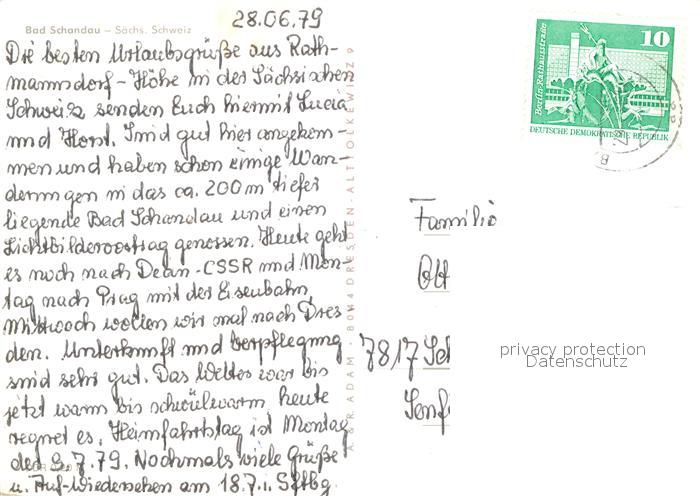 28.06.79
Bad Schandau – Sächs. Schweiz
Die besten Urlaubsgrüße aus Rath-
mannsdorf-Höhe in der Sächsischen
Schweiz senden Euch hiermit Lucia
und Horst. Sind gut hier angekom-
men und haben schon einige Wan-
derungen in das ca. 200 m tiefer
liegende Bad Schandau und einen
Lichtbildervortrag genossen. Heute geht
es noch nach -CSSR und Mon-
tag nach Prag mit der Eisenbahn
Mittwoch wollen wir mal nach Dres
den. Unterkunft und Verpflegung
sind sehr gut. Das Wetter war bis
jetzt warm bis schwülwarm, heute
regnet es. Heimfahrtstag ist Montag
der 9.7.79. Nochmals viele Grüße
u. Auf-Wiedersehen am 18.7. i.
A. & R. ADAM · 8044 DRESDEN - ALT
10
Berlin-Rathausstraße
DEUTSCHE DEMOKRATISCHE REPUBLIK
Familie
Ott
7817
privacy protection
Datenschutz